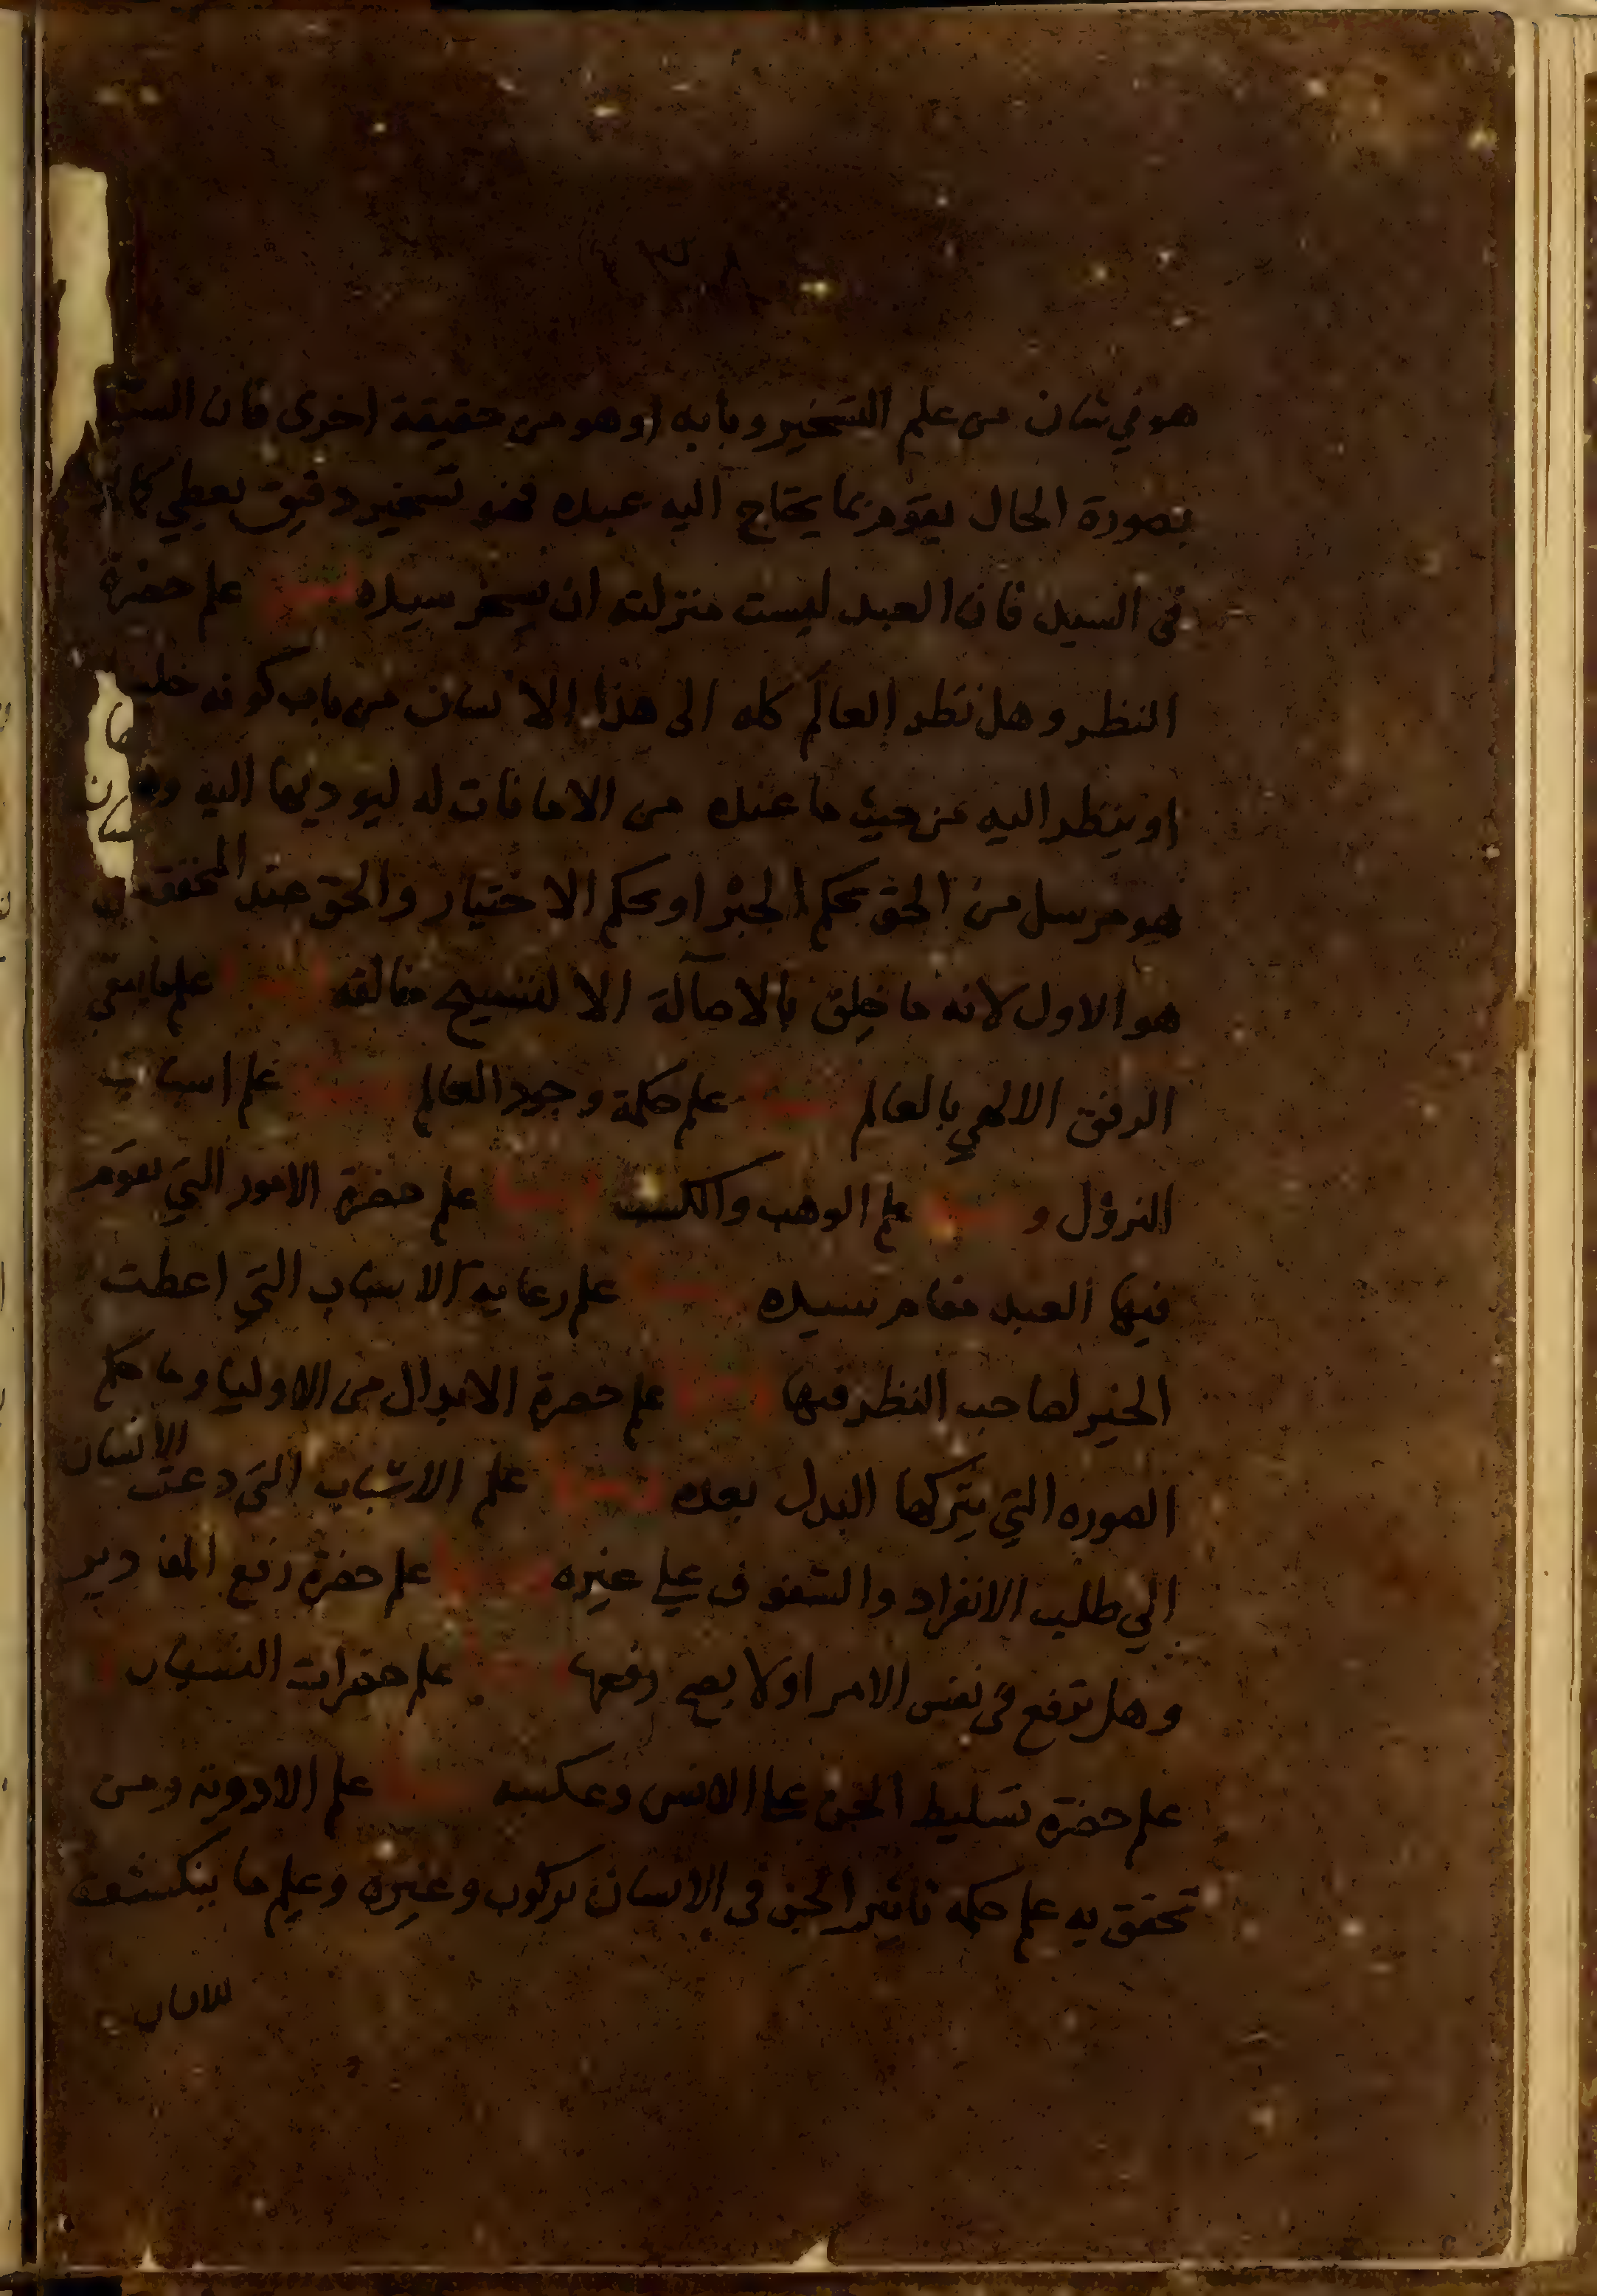 هو في شان من علم التسخير وبابه او هو من حقيقة اخرى فان
بصورة الحال يقوم بما يحتاج اليه عبده فهو تسخير دقيق يعطي
في السيد فان العبد ليست منزلته ان يسخر سيده علم حضرة
النظر وهل نظر العالم كله الى هذا الانسان من باب كونه
او ينظر اليه من حيث ما عنده من الامانات له ليوديها اليه
هو مرسل من الحق بحكم الجبر او بحكم الاختيار والحق عند
هو الاول لانه ما خلق بالاصالة الا لتسبيح خالقه
الرفق الالهي بالعالم علم حكمة وجود العالم علم اسباب
النزول و علم الوهب والكسب علم حضرة الامور التي يقوم
فيها العبد مقام سيده علم رعاية الاسباب التي اعطت
الخير لصاحب النظر فيها علم حضرة الابدال من الاوليا وما حكم
الصوره التي يتركها البدل بعده علم الاسباب التي دعت الانسان
الي طلب الانفراد والشفوف علي غيره علم حضرة رفع المقادير
وهل ترفع في نفس الامر او لا يصح رفعها علم حضرات النسيان
علم حضرة تسليط الجن علي الانس وعكسه علم الادوية ومن
تحقق به علم حكمه تاثير الجن في الانسان بركوب وغيره وعلم ما ينكشف